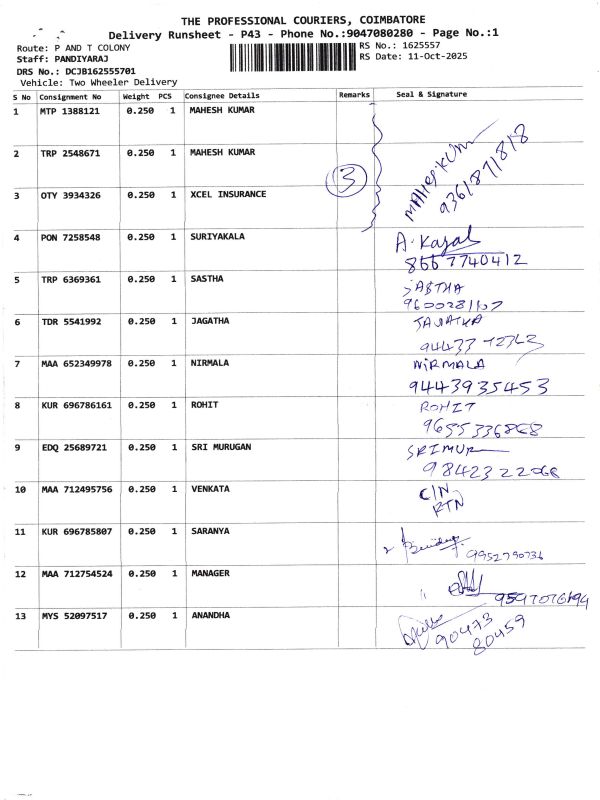 THE PROFESSIONAL COURIERS, COIMBATORE
Delivery Runsheet - P43 - Phone No.:9047080280 - Page No.:1
Route: P AND T COLONY
Staff: PANDIYARAJ
DRS No.: DCJB162555701
Vehicle: Two Wheeler Delivery
RS No.: 1625557
RS Date: 11-Oct-2025
S No Consignment No Weight PCS Consignee Details Remarks Seal & Signature
1 MTP 1388121 0.250 1 MAHESH KUMAR
2 TRP 2548671 0.250 1 MAHESH KUMAR
3
MAHESH KUM
9361871818
3 OTY 3934326 0.250 1 XCEL INSURANCE
4 PON 7258548 0.250 1 SURIYAKALA A. Kajal
8667740412
5 TRP 6369361 0.250 1 SASTHA SASTHA
6 TDR 5541992 0.250 1 JAGATHA
7 MAA 652349978 0.250 1 NIRMALA NIRMALA
9443935453
8 KUR 696786161 0.250 1 ROHIT ROHIT
9655336868
9 EDQ 25689721 0.250 1 SRI MURUGAN SRIMUR
9842322068
10 MAA 712495756 0.250 1 VENKATA C/N
RTN
11 KUR 696785807 0.250 1 SARANYA
9952790736
12 MAA 712754524 0.250 1 MANAGER
13 MYS 52097517 0.250 1 ANANDHA
90473
80459